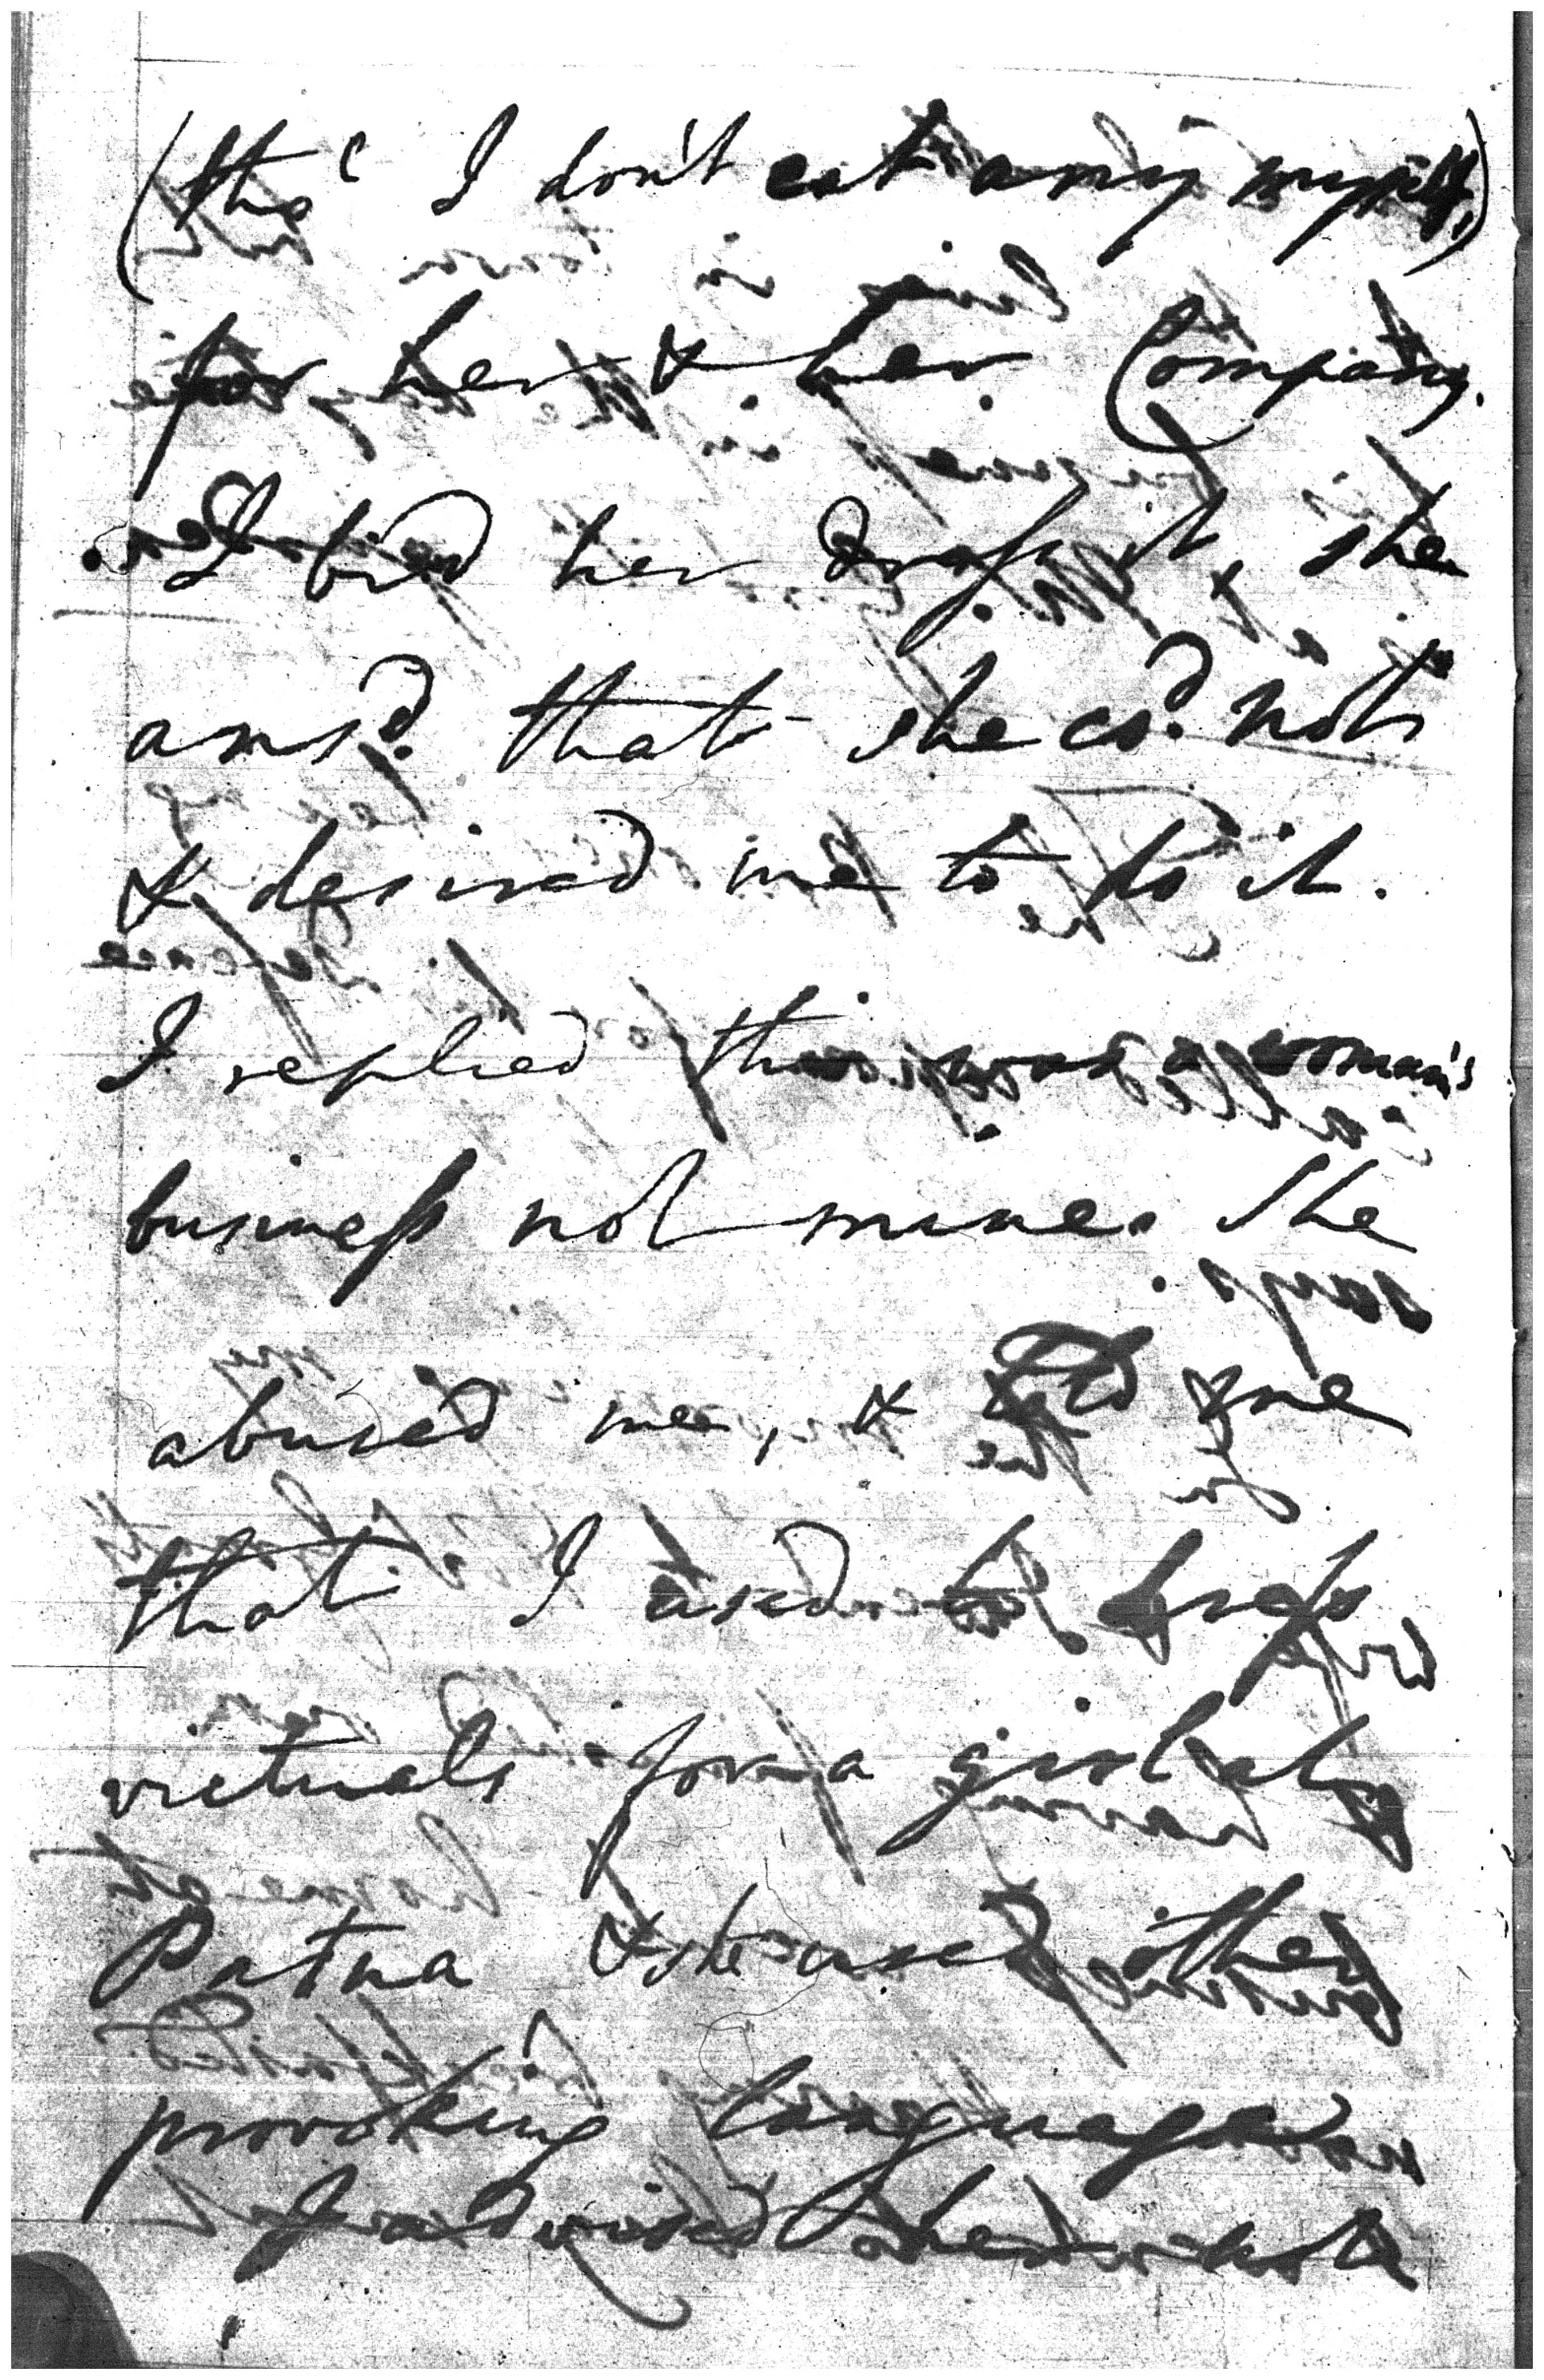 (tho' I don't eat any myself,)
for her & her Company.
I bied her dress it, she
ansd. that she cd. not
& desired me to do it.
I replied this was a woman's
business not mine. She
abused me, & told me
that I used to dress
victuals for a girl at
Patna & she used other
provoking language
I advised her not to